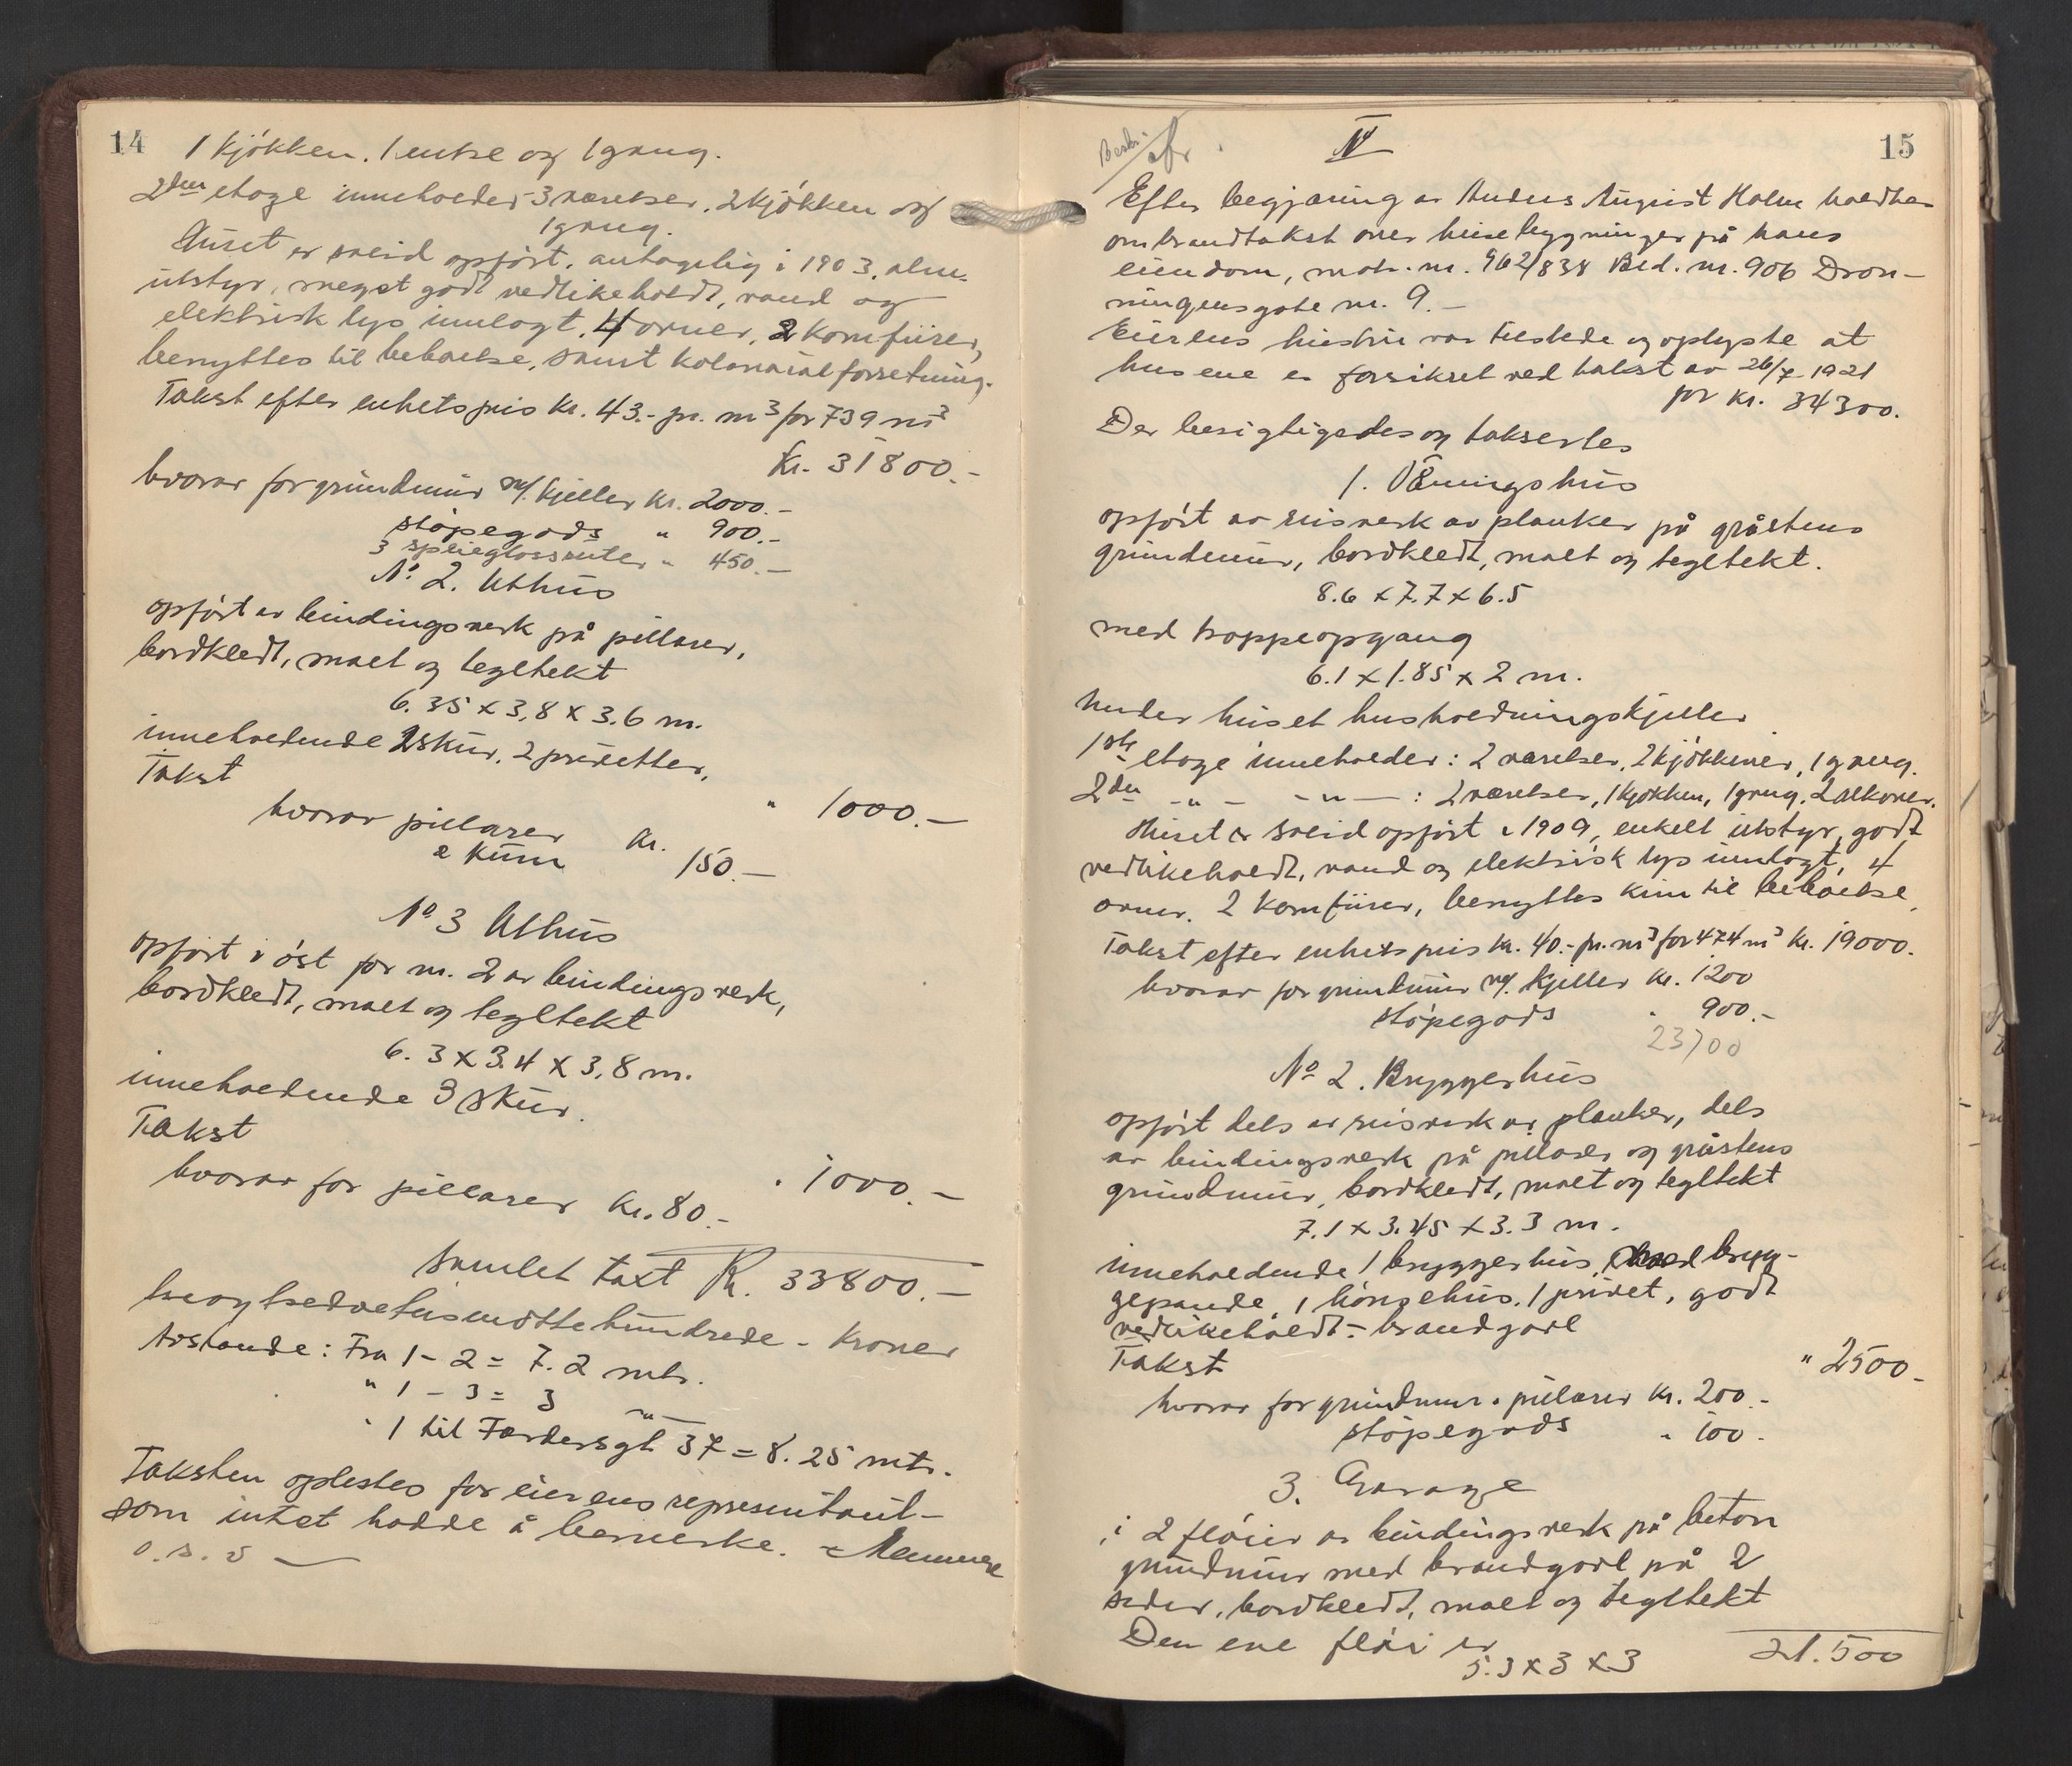 14
1 kjökken, 1 entre og 1 gang.
2den etage inneholder 3 værelser, 2 kjökken og
1 gang.
Huset er solid opfört, antagelig i 1903, alm.
utstyr, meget godt vedlikeholdt, vand og
elektrisk lys innlagt, 4 ovner, 2 komfürer,
benyttes til beboelse, samt kolonialforretning.
Takst efter enhetspris kr. 43.- pr. m³ for 739 m³
Kr. 31800.-
hvorav for grundmur m/ kjeller kr. 2000.-
stöpegods " 900.-
3 speilglassruter " 450.-
No 2. Uthus
opfört av bindingsverk på pillarer,
bordkledt, malt og tegltekt
6.35 x 3,8 x 3.6 m.
inneholdende 2 skur, 2 privetter,
Takst
" 1000.-
hvorav pillarer kr.
150.-
No 3 Uthus
opfört i öst for nr. 2 av bindingsverk,
bordkledt, malt og tegltekt
6.3 x 3.4 x 3,8 m.
inneholdende 3 skur.
Takst
" 1000.-
hvorav for pillarer kr. 80.-
Samlet taxt Kr. 33800.-
treogtredvetusenottehundrede - Kroner
Avstande: Fra 1 - 2 = 7.2 mtr.
" 1 - 3 = 3 -"-
" 1 til Færdersgt 37 = 8.25 mtr.
Taksten oplestes for eierens representant -
som intet hadde å bemerke.
o.s.v

15
IV
Efter begjæring av Anders August Holm holdtes
ombrandtakst over husebygninger på hans
eiendom, matr. nr. 962/838 Bed. nr. 906 Dron-
ningensgate nr. 9.-
Eierens hustru var tilstede og oplyste at
husene er forsikret ved takst av 26/7-1921
for kr. 34300.
Der besigtigedes og takseres
1. Våningshus
opfört av reisverk av planker på gråstens
grundmur, bordkledt, malt og tegltekt.
8.6 x 7.7 x 6.5
med trappeopgang
6.1 x 1.85 x 2 m.
Under huset husholdningskjeller
1ste etage inneholder: 2 værelser, 2 kjökkener, 1 gang.
2den -"- -"-: 2 værelser, 1 kjökken, 1 gang, 2 alkover.
Huset er solid opfört i 1909, enkelt utstyr, godt
vedlikeholdt, vand og elektrisk lys innlagt, 4
ovner, 2 komfürer, benyttes kun til beboelse.
Takst efter enhetspris kr. 40.- pr. m³ for 474 m³ Kr. 19000.
hvorav for grundmur m/ kjeller kr. 1200
stöpegods " 900.-
23700
No 2. Bryggerhus
opfört dels av reisverk av planker, dels
av bindingsverk på pillarer og gråstens
grundmur, bordkledt, malt og tegltekt
7.1 x 3.45 x 3.3 m.
inneholdende 1 bryggerhus, med bryg-
gepande, 1 hönsehus, 1 privet, godt
vedlikeholdt - brandgavl
Takst " 2500.-
hvorav for grundmur & pillarer kr. 200.-
stöpegods " 100.-
3. Garage
i 2 flöier av bindingsverk på beton
grundmur med brandgavl på 2
sider, bordkledt, malt og tegltekt
Den ene flöi er
5.3 x 3 x 3
21.500